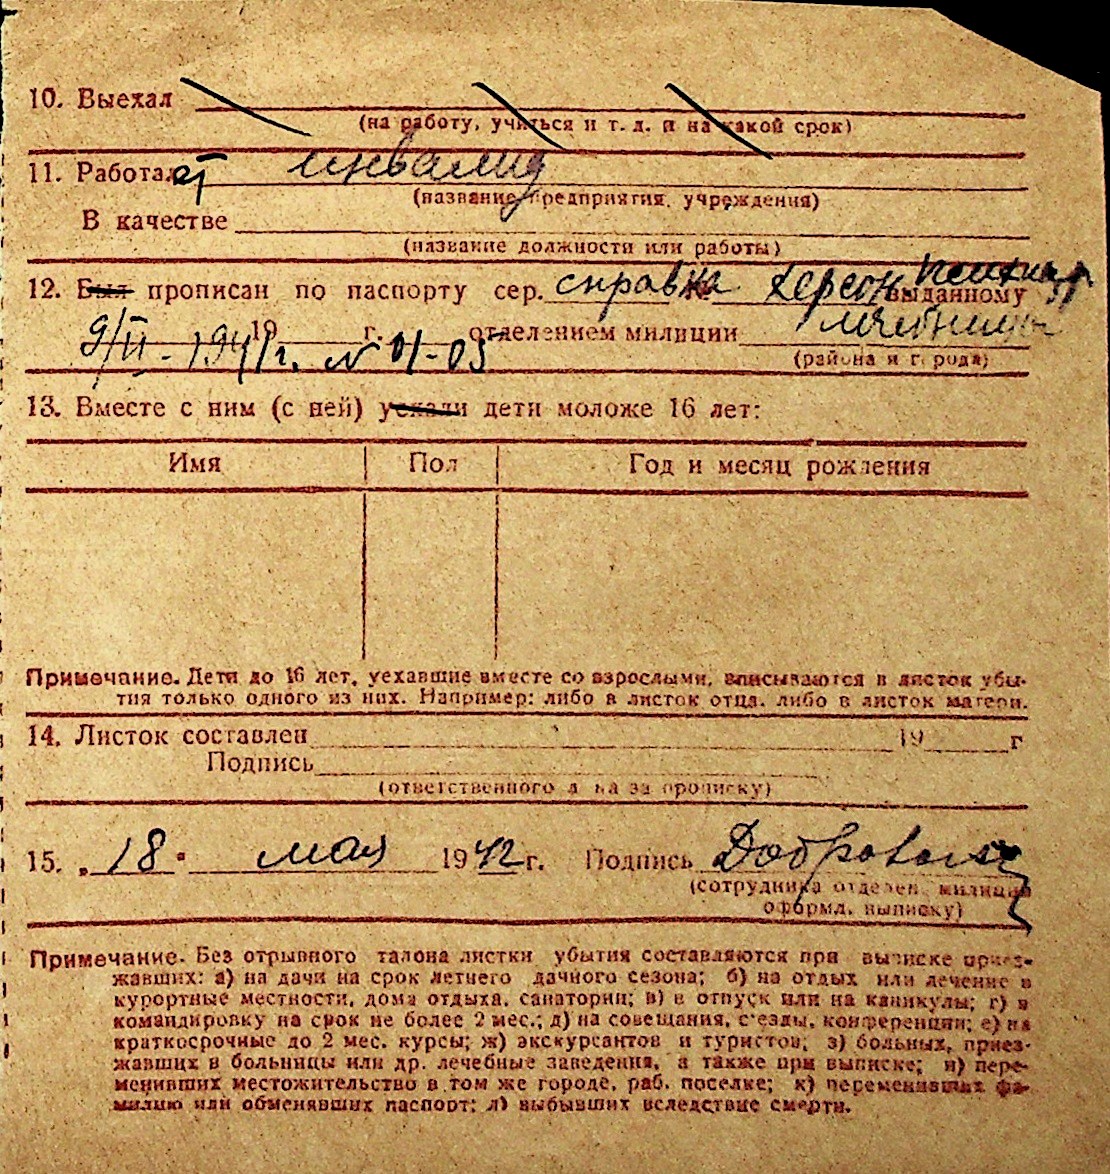 10. Выехал
(на работу, учиться и т. д. и на какой срок)
11. Работает инвалид
(название предприятия, учреждения)
В качестве
(название должности или работы)
12. Был прописан по паспорту сер. справка Херсон. психиатр выданному
9/II - 1941 г. № 01-05 19 г. отделением милиции лечебницы
(района и города)
13. Вместе с ним (с ней) уехали дети моложе 16 лет:
Имя Пол Год и месяц рождения
Примечание. Дети до 16 лет, уехавшие вместе со взрослыми, вписываются в листок убы-
тия только одного из них. Например: либо в листок отца, либо в листок матери.
14. Листок составлен 19 г
Подпись
(ответственного л на за прописку)
15. „18" мая 1942 г. Подпись
(сотрудника отделен. милиции
оформл. выписку)
Примечание. Без отрывного талона листки убытия составляются при выписке приез-
жавших: а) на дачи на срок летнего дачного сезона; б) на отдых или лечение в
курортные местности, дома отдыха, санатории; в) в отпуск или на каникулы; г) в
командировку на срок не более 2 мес.; д) на совещания, с'езды, конференции; е) на
краткосрочные до 2 мес. курсы; ж) экскурсантов и туристов; з) больных, приез-
жавших в больницы или др. лечебные заведения, а также при выписке; и) пере-
менивших местожительство в том же городе, раб. поселке; к) переменивших фа-
милию или обменявших паспорт; л) выбывших вследствие смерти.